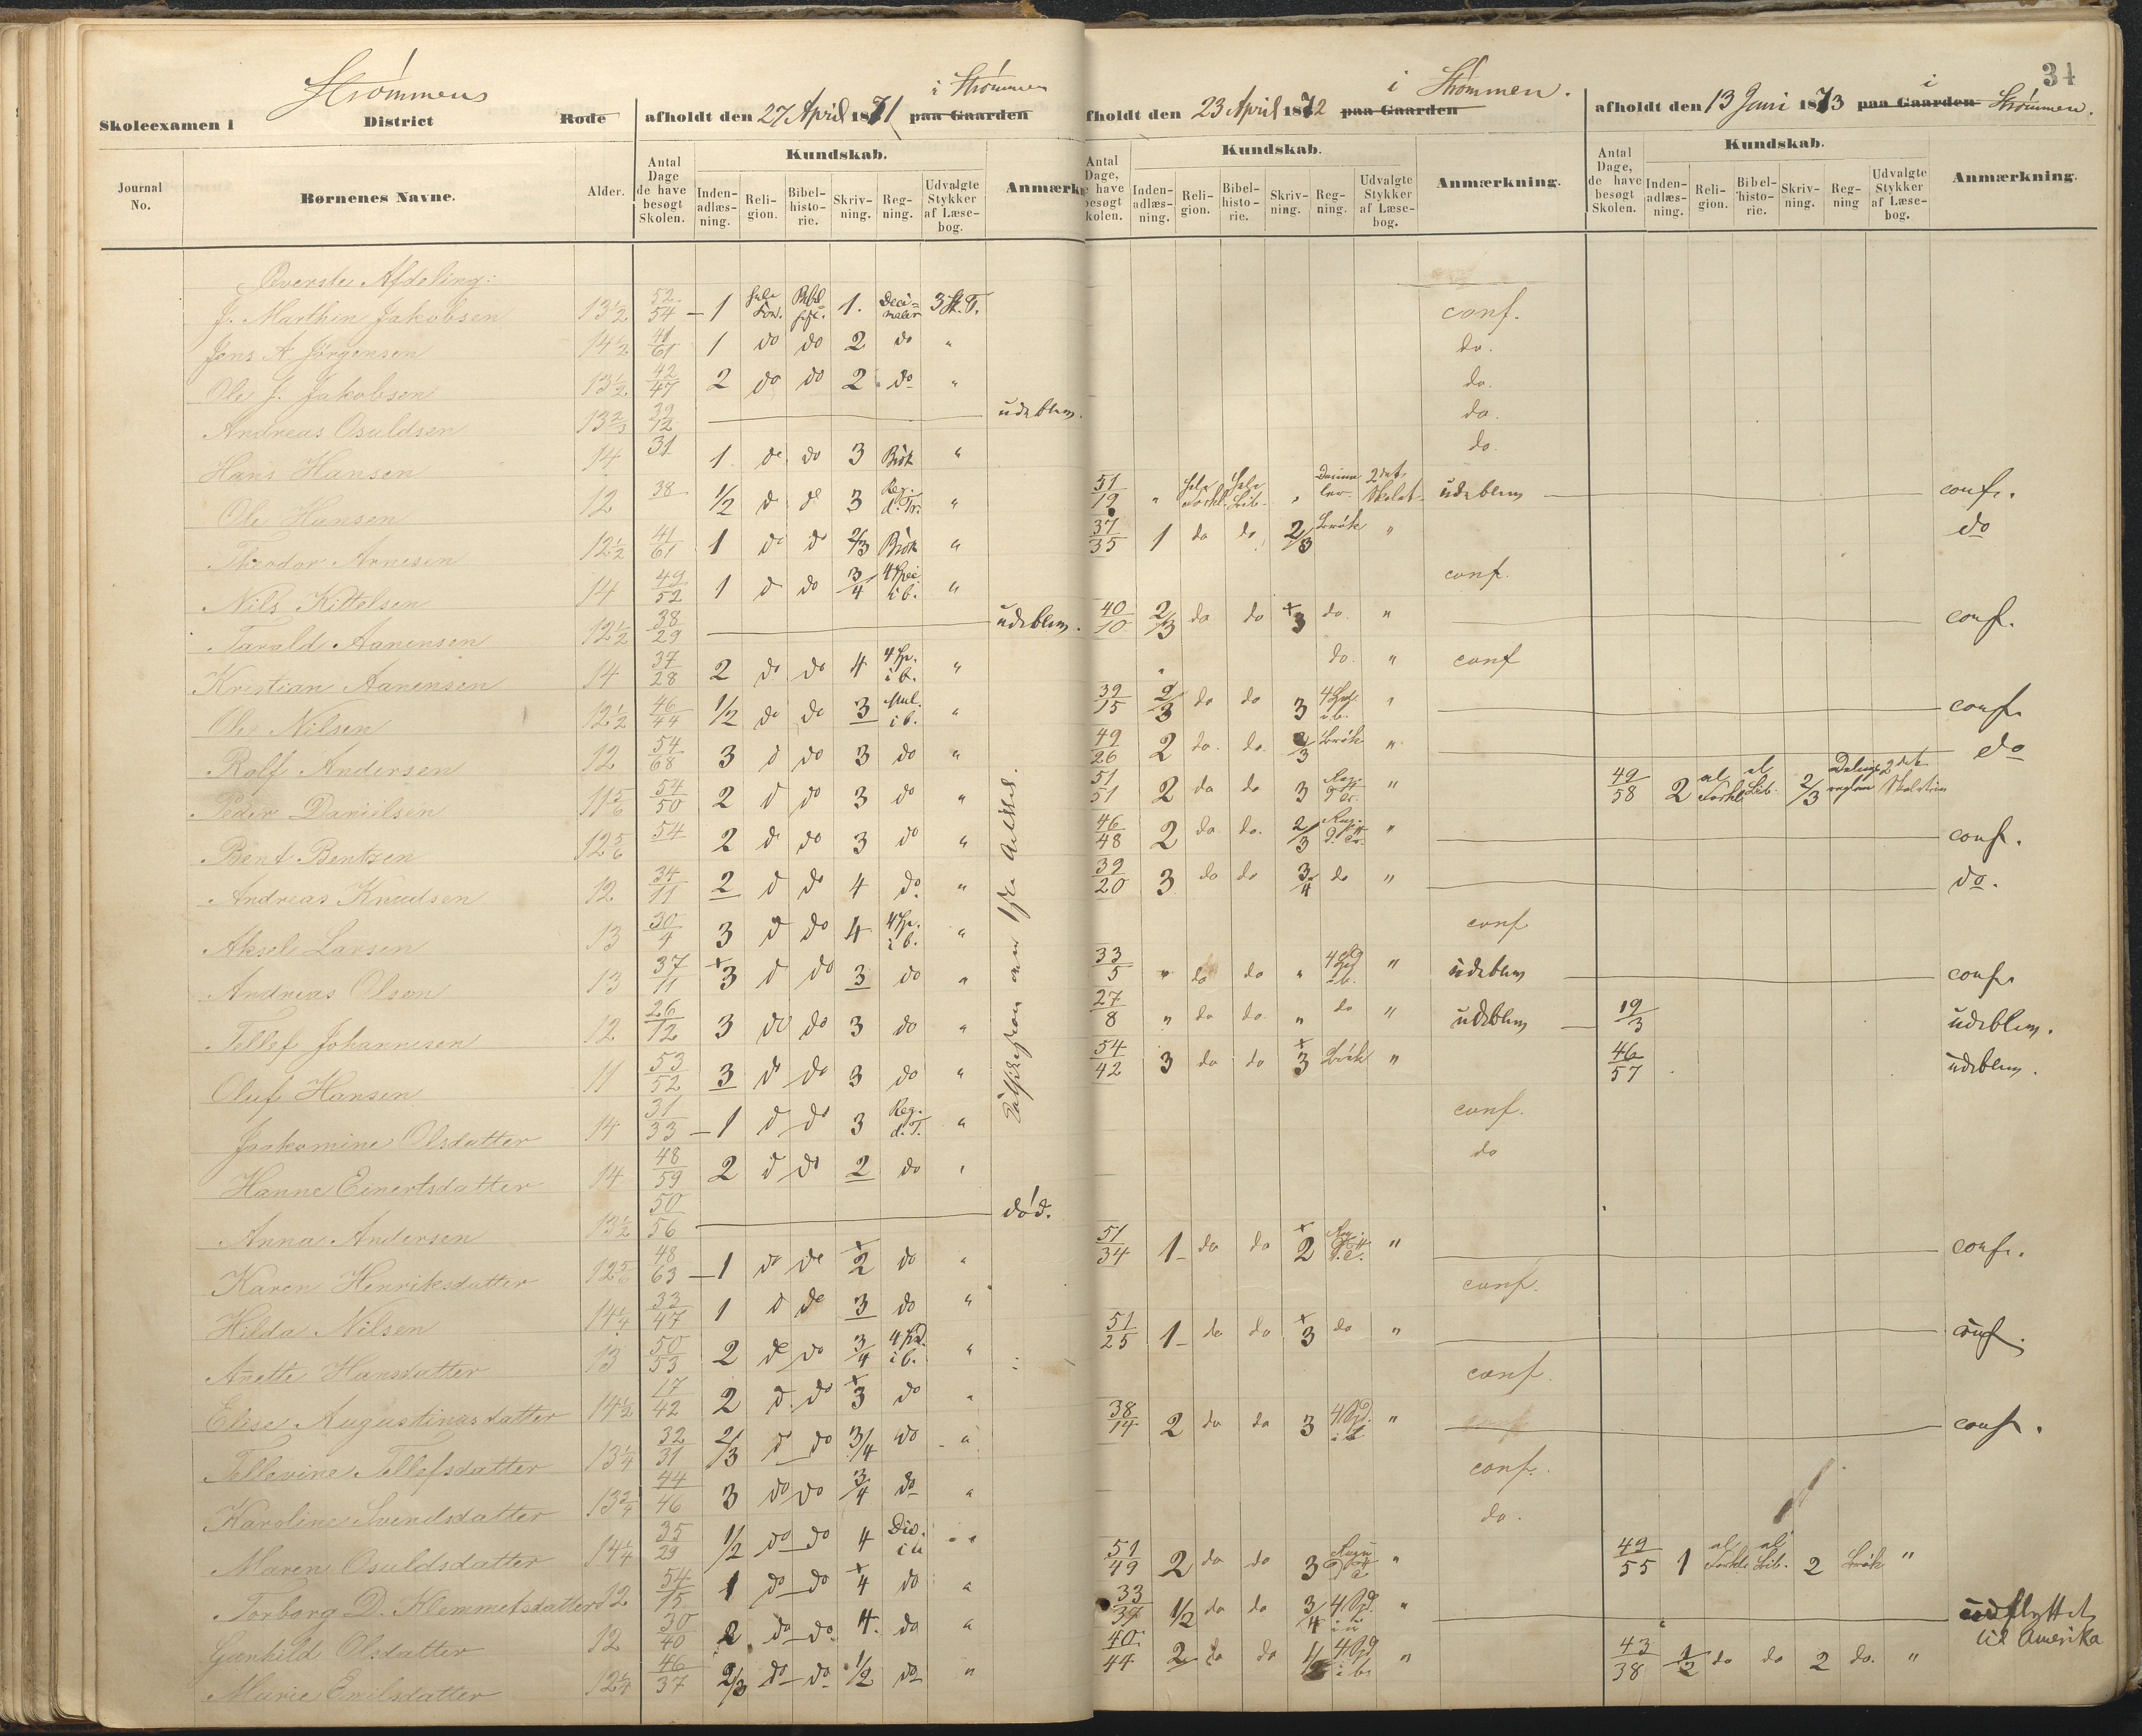 34
Strømmens
Skoleexamen i District Rode afholdt den 27 April 1871 paa Gaarden i Strømmen
fholdt den 23 April 1872 paa Gaarden i Strømmen.
afholdt den 13 Juni 1873 paa Gaarden i Strømmen.
Journal No. Børnenes Navne. Alder. Antal Dage de have besøgt Skolen. Kundskab. Inden-adlæs-ning. Reli-gion. Bibel-histo-rie. Skriv-ning. Reg-ning. Udvalgte Stykker af Læse-bog. Anmærk
Antal Dage, e have esøgt kolen. Kundskab. Inden-adlæs-ning. Reli-gion. Bibel-histo-rie. Skriv-ning. Reg-ning. Udvalgte Stykker af Læse-bog. Anmærkning.
Antal Dage, de have besøgt Skolen. Kundskab. Inden-adlæs-ning. Reli-gion. Bibel-histo-rie. Skriv-ning. Reg-ning Udvalgte Stykker af Læse-bog. Anmærkning.
Øverste Afdeling:
J. Marthin Jakobsen 13½ 52/54 1 1. Deci=maler 3 St. T. conf.
Jens A. Jørgensen 14½ 41/61 1 do do 2 do " do.
Ole J. Jakobsen 13½ 42/47 2 do do 2 do " do.
Andreas Osuldsen 13⅔ 39/12 udeblev. do.
Hans Hansen 14 31 1 do do 3 Brøk " do
Ole Hansen 12 38 ½ d d 3 Reg. d. Tr. " 51/19 " " 2det Skolet. udeblev conf.
Theodor Arnesen 12½ 41/61 1 d d 2/3 Brøk " 37/35 1 do do 2/3 Brøk " do
Nils Kittelsen 14 49/52 1 d do 3/4 4 Spec. i b. " conf.
Tarald Aanensen 12½ 38/29 udeblev. 40/10 2/3 do do 3 do. " conf.
Kristian Aanensen 14 37/28 2 do do 4 4 Sp. i b. " do. " conf
Ole Nilsen 12½ 46/44 ½ do do 3 Mul. i b. " 39/15 2/3 do do 3 i b. " conf.
Rolf Andersen 12 54/68 3 d do 3 do " 49/26 2 do. do. 2/3 Brøk " do
Peder Danielsen 11⅚ 54/50 2 d do 3 do " 51/51 2 do do 3 " 49/58 2 2/3 2det
Bent Bentzen 12⅚ 54 2 d do 3 do " 46/48 2 do do. 2/3 " conf.
Andreas Knudsen 12 34/11 2 d do 4 do " 39/20 3 do do 3/4 do " do.
Aksel Larsen 13 30/4 3 d do 4 4 Sp. i b. " conf
Andreas Olsen 13 37/11 3 d do 3 do " 33/5 " do do " " udeblev conf.
Tellef Johannesen 12 26/12 3 do do 3 do " 27/8 " do do. " do " udeblev 19/3 udeblev.
Oluf Hansen 11 53/52 3 do do 3 do " 54/42 3 do do 3 Brøk " 46/57 udeblev.
Jaskomine Olsdatter 14 31/33 1 d do 3 Reg. d. T. " conf.
Hanne Einertsdatter 14 48/59 2 d do 2 do " do
Anna Andersen 13½ 50/56 død. 51/34 1 do do 2 " conf.
Karen Henriksdatter 12⅚ 48/63 1 do do 2 do " conf.
Hilda Nilsen 14¼ 33/47 1 d do 3 do " 51/25 1 do do 3 do " conf.
Anette Hansdatter 13 50/53 2 do do 3/4 i b. " conf.
Elise Augustinusdatter 14½ 17/42 2 d. do 3 do " 38/14 2 do do 3 " conf.
Tellevine Tellefsdatter 13¼ 32/31 2/3 d do 3/4 do " conf.
Karoline Svendsdatter 13¾ 44/46 3 do do 3/4 do " do.
Maren Osuldsdatter 14¼ 35/29 ½ do do 4 Div. i u " 51/49 2 do do 3 " 49/55 1 2 Brøk "
Torborg D. Klemmetsdatter 12 54/15 1 do do 4 do " 33/37 ½ do do 3/4 " udflyttet til Amerika
Gunhild Olsdatter 12 30/40 2 do do. 4. do " 40/44 2 do do i b. " 43/38 ½ do do 2 do. "
Marie Emilsdatter 12¼ 46/37 2/3 do do ½ do "